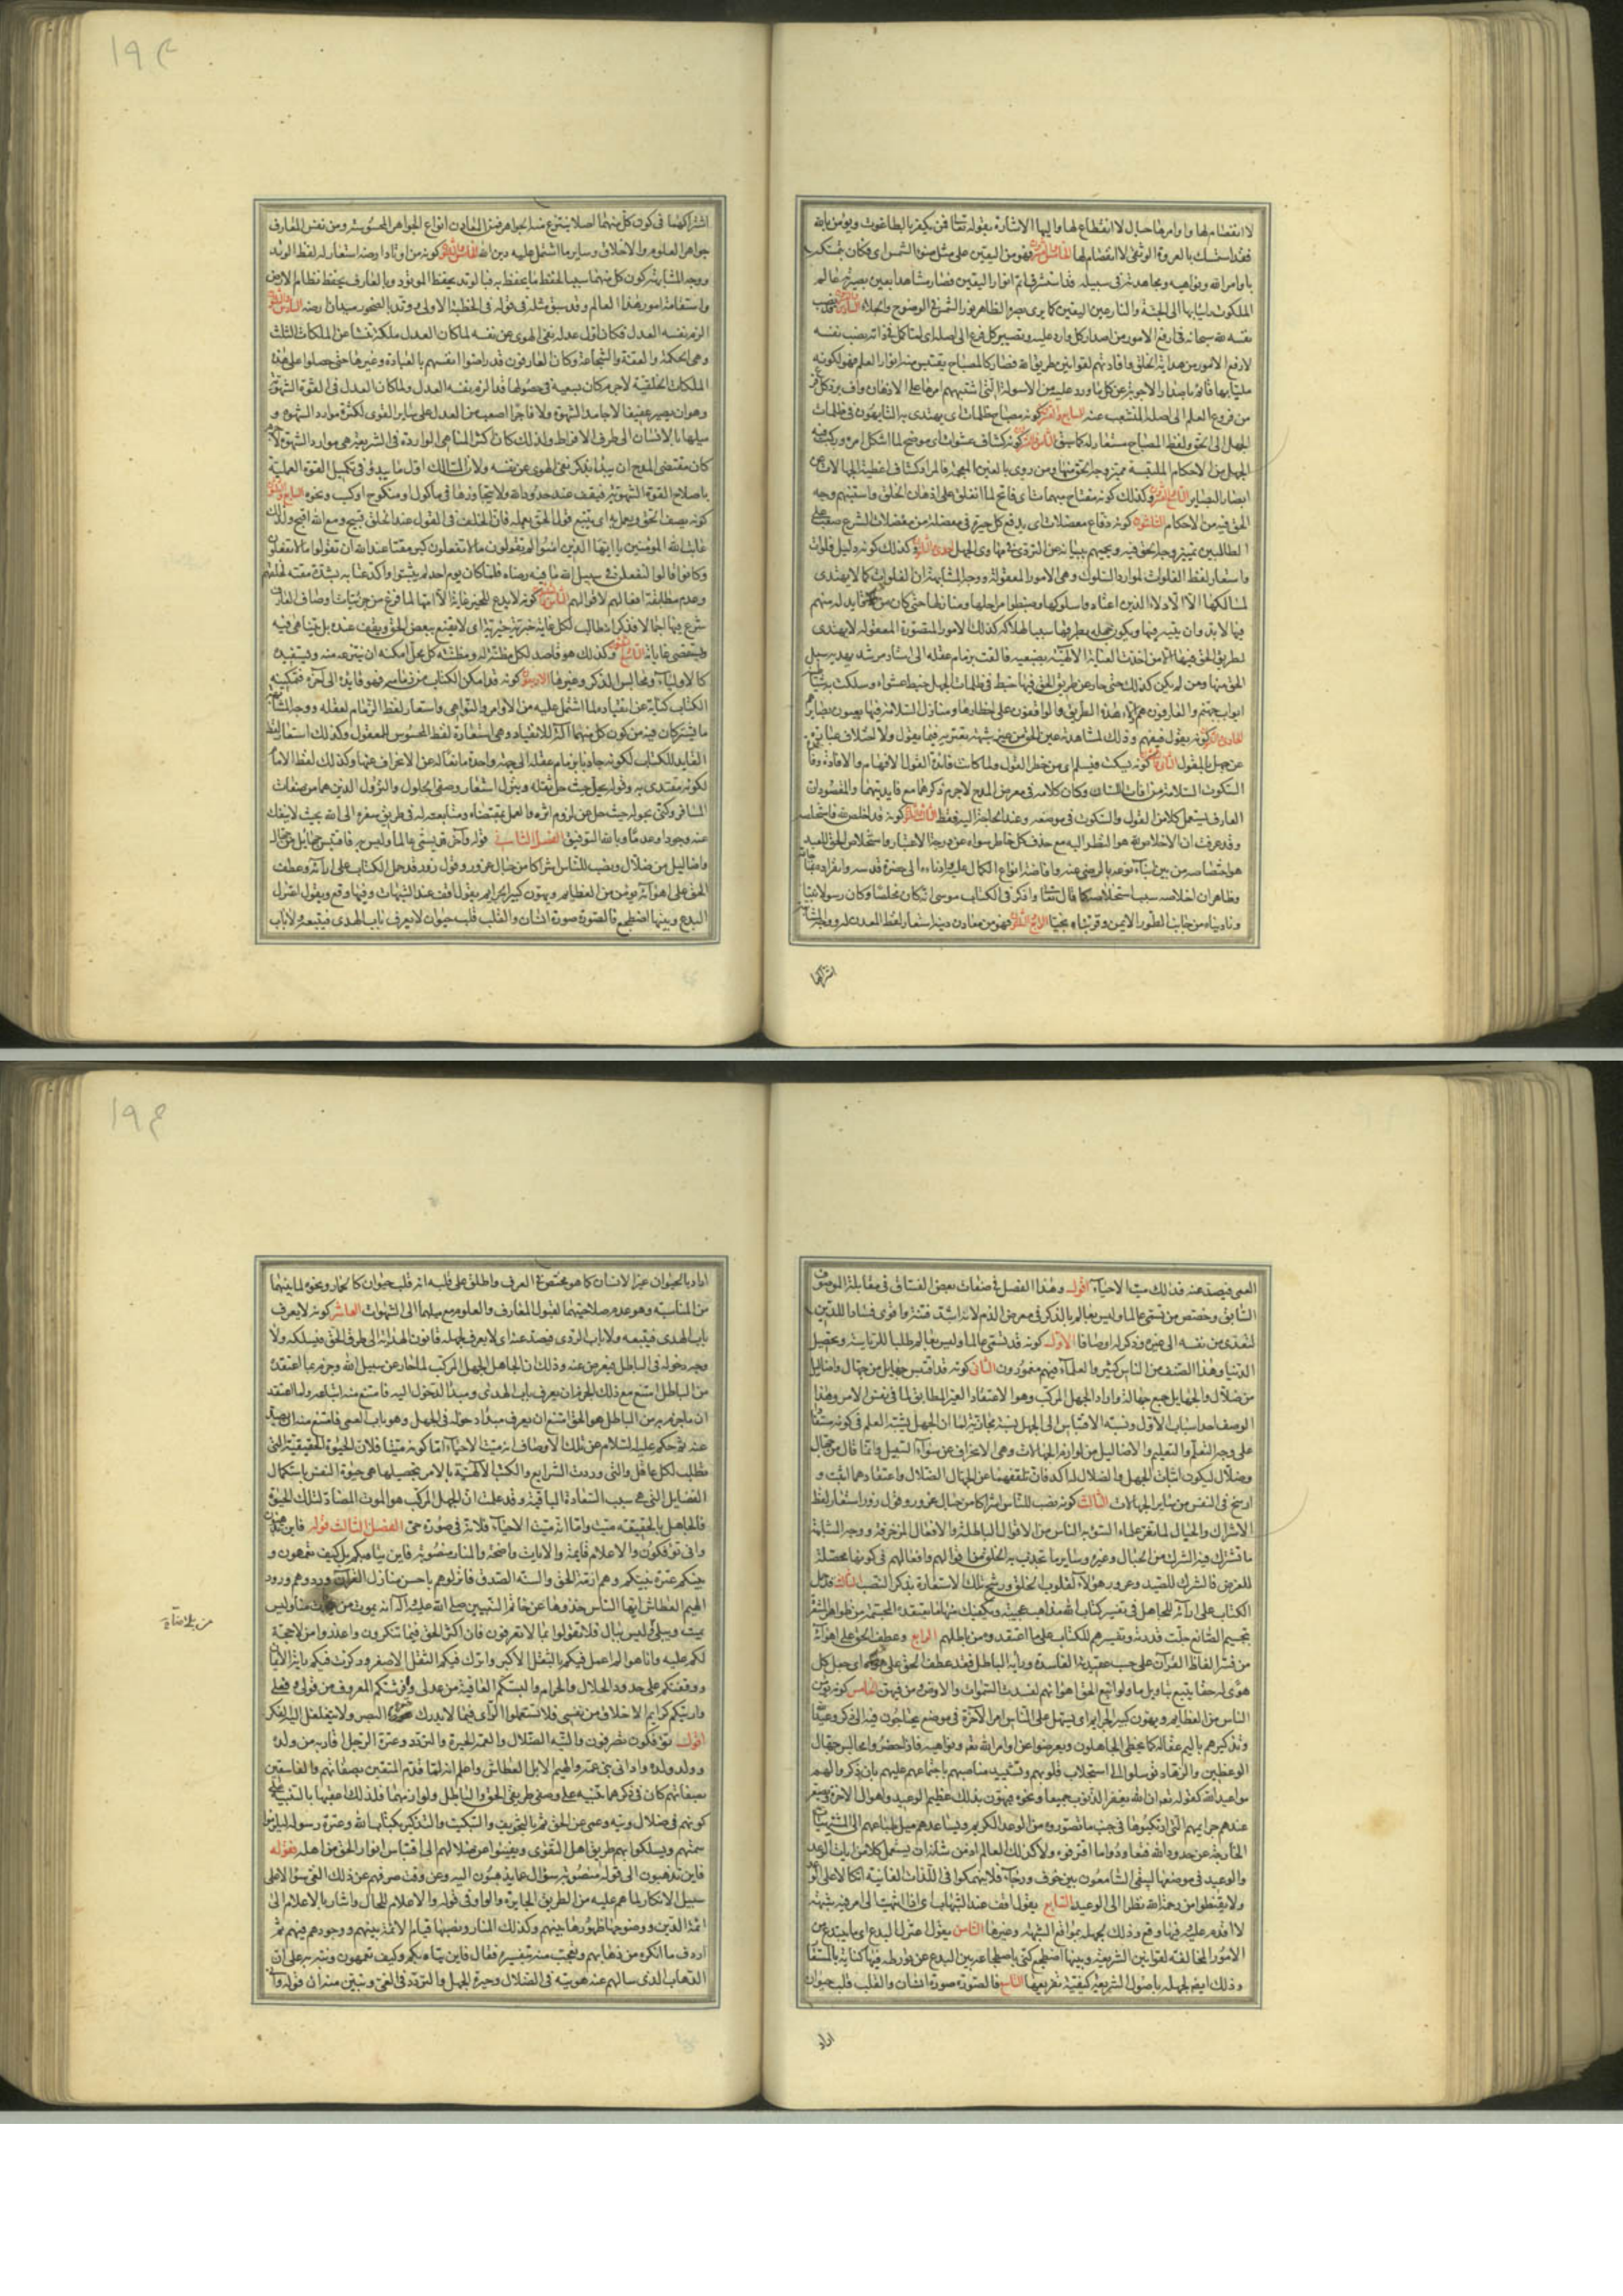 لا انفصام لها واوامرها حبال لا انقطاع لها واليها الاشارة بقوله تعالى فمن يكفر بالطاغوت ويؤمن بالله
فقد استمسك بالعروة الوثقى لا انفصام لها فهو من اليقين على مثل ضوء الشمس اى فكان بتمسكه
باوامر الله ونواهيه ومجاهدته فى سبيله قد استشرق اتم انوار اليقين فصار مشاهدا بعين بصيرته عالم
الملكوت
نفسه لله سبحانه فى ارفع الامور من اصدار كل وارد عليه وتصيير كل فرع الى اصله اى لما كمل فى ذاته نصب نفسه
لارفع الامور من هداية الخلق وافادتهم لقوانين طريق الله فصار كالمصباح يقتبس منه انوار العلم فهو لكونه
من فروع العلم الى اصله المنشعب عنه كونه مصباح ظلمات اى يهتدى به التايهون فى ظلمات
الجهل الى الحق ولفظ المصباح مستعار له كما سبق كونه كشاف عشوات اى موضح لما اشكل امره
ابصار البصاير وكذلك كونه مفتاح مبهمات اى فاتح لما انغلق على اذهان الخلق واستبهم وجه
الحق فيه من الاحكام كونه دفاع معضلات اى يدفع كل حيرة فى معضلة من معضلات الشرع صعب على
الطالبين تمييز وجه الحق فيه ويجيبهم ببيانه عن التردى فى مهاوى الجهل وكذلك كونه دليل فلوات
واستعار لفظ الفلوات لموارد السلوك وهى الامور المعقولة ووجه المشابهة ان الفلوات كما لا يهتدى
لمسالكها الا الادلاء الذين اعتادوا سلوكها وضبطوا مراحلها ومنازلها
لطريق الحق فيها الا من اخذت العناية الالهية بضبعيه فالقت بزمام عقله الى استاد مرشد يهديه سبيل
الحق منها ومن لم يكن كذلك حتى حاد عن طريق الحق فيها خبط فى ظلمات الجهل خبط عشواء وسلكت به شياطينه
ابواب جهنم والعارفون هم ادلاء هذه الطريق والواقفون على اخطارها ومنازل السلامة فيها بعيون بصايرهم
كونه يقول فيفهم وذلك لمشاهدته عين الحق
كونه يسكت فيسلم اى من خطر القول ولما كانت فائدة القول الافهام والافادة وفائدة
السكوت السلامة من افات اللسان وكان كلامه فى معرض المدح لاجرم ذكرهما مع فايدتيهما والمقصود ان
العارف يستعمل كلا من القول والسكوت فى موضعه وعند الحاجة اليه فقط كونه قد اخلص لله فاستخلصه
وقد عرفت ان الاخلاص لله هو النظر اليه مع حذف كل خاطر سواه عن درجة الاعتبار واستخلاص الحق للعبد
هو اختصاصه من بين ابناء نوعه بالرضى عنه وافاضة انواع الكمال عليه وادناءه الى حضرة قدسه وانفراده بمناجاته
وظاهر ان اخلاصه سبب استخلاصه كما قال تعالى واذكر فى الكتاب موسى انه كان مخلصا وكان رسولا نبيا
وناديناه من جانب الطور الايمن وقربناه نجيا فهو من معادن دينه استعار لفظ المعدن له ووجه المشابهة
اشتراكهما
١٩٢
اشتراكهما فى كون كل منهما اصلا ينتزع منه الجواهر فمن المعادن انواع الجواهر المحسوسة ومن نفس العارف
جواهر العلوم والاخلاق وساير ما اشتمل عليه دين الله كونه من اوتاد ارضه استعار له لفظ الوتد
ووجه المشابهة كون كل منهما سببا لحفظ ما يحفظ به فبالوتد يحفظ الموتود وبالعارف يحفظ نظام الارض
واستقامة امور هذا العالم وقد سبق مثله فى قوله فى الخطبة الاولى ووتد بالصخور ميدان ارضه
الزم نفسه العدل فكان اول عدله نفى الهوى عن نفسه لما كان العدل ملكة تنشأ عن الملكات الثلث
وهى الحكمة والعفة والشجاعة وكان العارفون قد راضوا انفسهم بالعبادة وغيرها حتى حصلوا على هذه
الملكات الخلقية لاجرم كان بسعيه فى حصولها قد الزم نفسه العدل ولما كان العدل فى القوة الشهوية
وهو ان يصير عفيفا لا جامد الشهوة ولا فاجرا اصعب من العدل على ساير القوى لكثرة موارد الشهوة و
ميلها بالانسان الى طرف الافراط ولذلك كان اكثر المناهى الواردة فى الشريعة هى موارد الشهوة لاجرم
كان مقتضى المدح ان يبدأ بذكر نفى الهوى عن نفسه ولان السالك اول ما يبدؤ فى تكميل القوة العملية
باصلاح القوة الشهوية فيقف عند حدود الله ولا يتجاوزها فى مأكول او منكوح او كسب ونحوه
كونه يصف الحق ويعمل به اى يتبع قول الحق بعمله فان الخلف فى القول عند الخلق قبيح ومع الله اقبح ولذلك
عاتب الله المؤمنين يا ايها الذين امنوا لم تقولون ما لا تفعلون كبر مقتا عند الله ان تقولوا ما لا تفعلون
وكانوا قالوا لنفعلن فى سبيل الله ما فيه رضاه فلما كان يوم احد لم يثبتوا
وعدم مطابقة افعالهم لاقوالهم كونه لا يدع للخير غاية الا امها لما فرغ من جزئيات اوصاف العارف
شرع فيها اجمالا
وكذلك هو قاصد لكل مظنة له ومظنته كل محل امكنه ان ينتزعه منه ويستفيده
كالاولياء ومجالس الذكر وغيرها كونه قد امكن الكتاب من زمامه فهو قايده الى آخره فتمكينه
الكتاب كناية عن انقياده لما اشتمل عليه من الاوامر والنواهى واستعار لفظ الزمام لعقله ووجه المشابهة
ما يشتركان فيه من كون كل منهما آلة للانقياد وهى استعارة لفظ المحسوس للمعقول وكذلك استعار لفظ
القايد للكتاب لكونه جاذبا بزمام عقله الى جهة واحدة مانعا له عن الانحراف عنها وكذلك لفظ الامام
لكونه مقتدى به وقوله يحل حيث حل ثقله وينزل استعار وصفى الحلول والنزول الذين هما من صفات
المسافر وكنى بحلوله حيث حل عن لزوم اثره والعمل بمقتضاه ومتابعته له فى طريق سفره الى الله بحيث لا ينفك
عنه وجودا وعدما وبالله التوفيق الفصل الثانى قوله وآخر قد تسمى عالما وليس به فاقتبس جهايل من جهال
واضاليل من ضلال ونصب للناس اشراكا من حبال غرور وقول زور قد حمل الكتاب على ارائه وعطف
الحق على اهوائه يؤمن من العظايم ويهون كبير الجرايم يقول اقف عند الشبهات وفيها وقع ويقول اعتزل
البدع وبينها اضطجع فالصورة صورة انسان والقلب قلب حيوان لا يعرف باب الهدى فيتبعه ولا باب
العمى فيصد عنه فذلك ميت الاحياء اقول وهذا الفصل فى صفات بعض الفساق فى مقابلة الموصوف
السابق وخصص من تسمى عالما وليس بعالم بالذكر فى معرض الذم لانه اشد فتنة واقوى فسادا للدين
لتعدى من نفسه الى غيره وذكر له اوصافا الاول كونه قد تسمى عالما وليس بعالم طلبا للرياسة وتحصيل
الدنيا وهذا الصنف من الناس كثير والعلماء فيهم مغمورون الثانى كونه قد اقتبس جهايل من جهال واضاليل
من ضلال والجهايل جمع جهالة واراد الجهل المركب وهو الاعتقاد الغير المطابق لما فى نفس الامر وهذا
الوصف احد اسباب الاول ونسبة الاقتباس الى الجهل نسبة مجازية لما ان الجهل يشبه العلم فى كونه مستفادا
على وجه التعلم والتعليم والاضاليل من لوازم الجهالات وهى الانحراف عن سواء السبيل وانما قال من جهال
وضلال ليكون اثبات الجهل والضلال له اكد فان تلقفهما عن الجهال الضلال واعتقادهما اثبت و
ارسخ فى النفس من ساير الجهالات الثالث كونه نصب للناس اشراكا من حبال غرور وقول زور استعار لفظ
الاشراك والحبال لما يغر علماء السوء به الناس من الاقوال الباطلة والافعال المزخرفة ووجه المشابهة
ما تشترك فيه الشرك من الحبال وغيره وساير ما تجذب به الخلق من اقوالهم وافعالهم فى كونها محصلة
للغرض فالشرك للصيد وغرور هؤلاء لقلوب الخلق ورشح تلك الاستعارة بذكر النصب الثالث قد حمل
الكتاب على ارائه للجاهل فى تفسير كتاب الله مذاهب عجيبة ويكفيك منها ما يعتقده المجسمة من ظواهر المشعرة
بتجسيم الصانع جلت قدرته وتفسيرهم للكتاب على ما اعتقدوه من باطلهم الرابع وعطف الحق على اهوائه
من فسر الفاظ القرآن على حسب عقيدته الفاسدة ورأيه الباطل فقد عطف الحق على هواه اى جعل كل
هوى له حقا يتبع بتاويل ما ولو اتبع الحق اهواءهم لفسدت السموات والارض ومن فيهن الخامس كونه يؤمن
الناس من العظايم ويهون كبير الجرايم اى يسهل على الناس امر الآخرة فى موضع يحتاجون فيه الى ذكر وعيد الله
وتذكيرهم باليم عقابه
الوعظين والزهاد توسلوا الى استجلاب قلوبهم وتشييد مناصبهم باجتماعهم عليهم بان ذكروا لهم
مواعيد الله كقوله تعالى ان الله يغفر الذنوب جميعا ونحوه فيهون بذلك عظيم الوعيد واهوال الآخرة ويصغر
عندهم جرايمهم التى ارتكبوها فى جنب ما تصوروه من الوعد الكريم ويساعدهم ميل طباعهم الى المشتهيات
الخارجة عن حدود الله فتعاودوا ما اقترفوه ولا كذلك العالم
والوعيد فى موضعها ليبقى السامعون بين خوف ورجاء فلا ينهمكوا فى اللذات الفانية اتكالا على الوعد
ولا يقنطوا من رحمة الله نظرا الى الوعيد السابع يقول اقف عند الشبهات اى اذا انتهيت الى امر فيه شبهة
لا اقدم عليه وفيها وقع وذلك لجهله بمواقع الشبهة وغيرها الثامن يقول اعتزل البدع اى ما يبتدع من
الامور المخالفة لقوانين الشريعة وبينها اضطجع كنى باضطجاعه بين البدع عن تورطه فيها كناية بالمستعار
وذلك ايضا لجهله باصول الشريعة وكيفية تفريعها التاسع فالصورة صورة انسان والقلب قلب حيوان
اراد
١٩٣
اراد بالحيوان غير الانسان كما هو مختص فى العرف واطلق على قلبه انه قلب حيوان كالحمار ونحوه لما بينهما
من المناسبة وهو عدم صلاحيتهما لقبول المعارف والعلوم مع ميلهما الى الشهوات العاشر كونه لا يعرف
باب الهدى فيتبعه ولا باب الردى فيصد عنه اى لا يعرف لجهله قانون الهداية الى طرف الحق فيسلكه ولا
وجه دخوله فى الباطل فيعرض عنه وذلك ان الجاهل الجهل المركب لما حاد عن سبيل الله وجزم بما اعتقده
من الباطل امتنع مع ذلك الجزم ان يعرف باب الهدى ومبدأ الدخول اليه فامتنع منه اتباعه ولما اعتقد
ان ما جزم به من الباطل هو الحق امتنع ان يعرف مبدأ دخوله فى الجهل وهو باب العمى فامتنع منه ان يصد
عنه ثم حكم عليه السلام عن تلك الاوصاف انه ميت الاحياء اما كونه ميتا فلان الحيوة الحقيقية التى
تطلب لكل عاقل والتى وردت الشرايع والكتب الالهية بالامر بتحصيلها هى حيوة النفس باستكمال
الفضايل التى هى سبب السعادة الباقية وقد علمت ان الجهل المركب هو الموت المضاد لتلك الحيوة
فالجاهل بالحقيقة ميت واما انه ميت الاحياء فلانه فى صورة حى الفصل الثالث قوله فاين تذهبون
وانى تؤفكون والاعلام قائمة والايات واضحة والمنار منصوبة فاين يتاه بكم بل كيف تعمهون و
بينكم عترة نبيكم وهم ازمة الحق والسنة الصدق فانزلوهم باحسن منازل القرآن وردوهم ورود
الهيم العطاش ايها الناس خذوها عن خاتم النبيين صلى الله عليه وآله انه يموت من مات منا وليس
بميت ويبلى وليس ببال فلا تقولوا بما لا تعرفون فان اكثر الحق فيما تنكرون واعذروا من لا حجة
لكم عليه وانا هو الم اعمل فيكم بالثقل الاكبر واترك فيكم الثقل الاصغر وركزت فيكم راية الايمان
ووقفتكم على حدود الحلال والحرام والبستكم العافية من عدلى وفرشتكم المعروف من قولى وفعلى
واريتكم كرايم الاخلاق من نفسى فلا تستعملوا الراى فيما لا يدرك قعره البصر ولا يتغلغل اليه الفكر
اقول تؤفكون تصرفون والتيه الضلال والعمه الحيرة والتردد وعترة الرجل اقاربه من ولده
وولد ولده وادانى بنى عمه والهيم الابل العطاش واعلم انه لما قدم المتقين بصفاتهم والفاسقين
بصفاتهم كان فى ذكرهما تنبيه على وصفى طريقى الحق والباطل ولوازمهما فلذلك اعقبها بالتنبيه على
كونهم فى ضلال وتيه وعمى عن الحق ثم بالتخويف والتبكيت والتذكير بكتاب الله وعترة رسوله ليلزموا
سمتهم ويسلكوا بهم طريق اهل التقوى ويفيئوا عن ضلالهم الى اقتباس انوار الحق من اهله فقوله
فاين تذهبون الى قوله منصوبة سؤال عما يذهبون اليه وعن وقت صرفهم عن ذلك الغى سؤالا على
سبيل الانكار لما هم عليه من الطريق الجايرة والواو فى قوله والاعلام للحال واشار بالاعلام الى
ائمة الدين ووضوحها ظهورها بينهم وكذلك المنار ونصبها قيام الائمة بينهم ووجودهم فيهم ثم
اردف ما انكره من ذهابهم وتعجب منه بتفسيره فقال فاين يتاه بكم وكيف تعمهون ونبه به على ان
الذهاب الذى سألهم عنه هو تيه فى الضلال وحيرة الجهل والتردد فى الغى وتبين منه ان قوله وانى